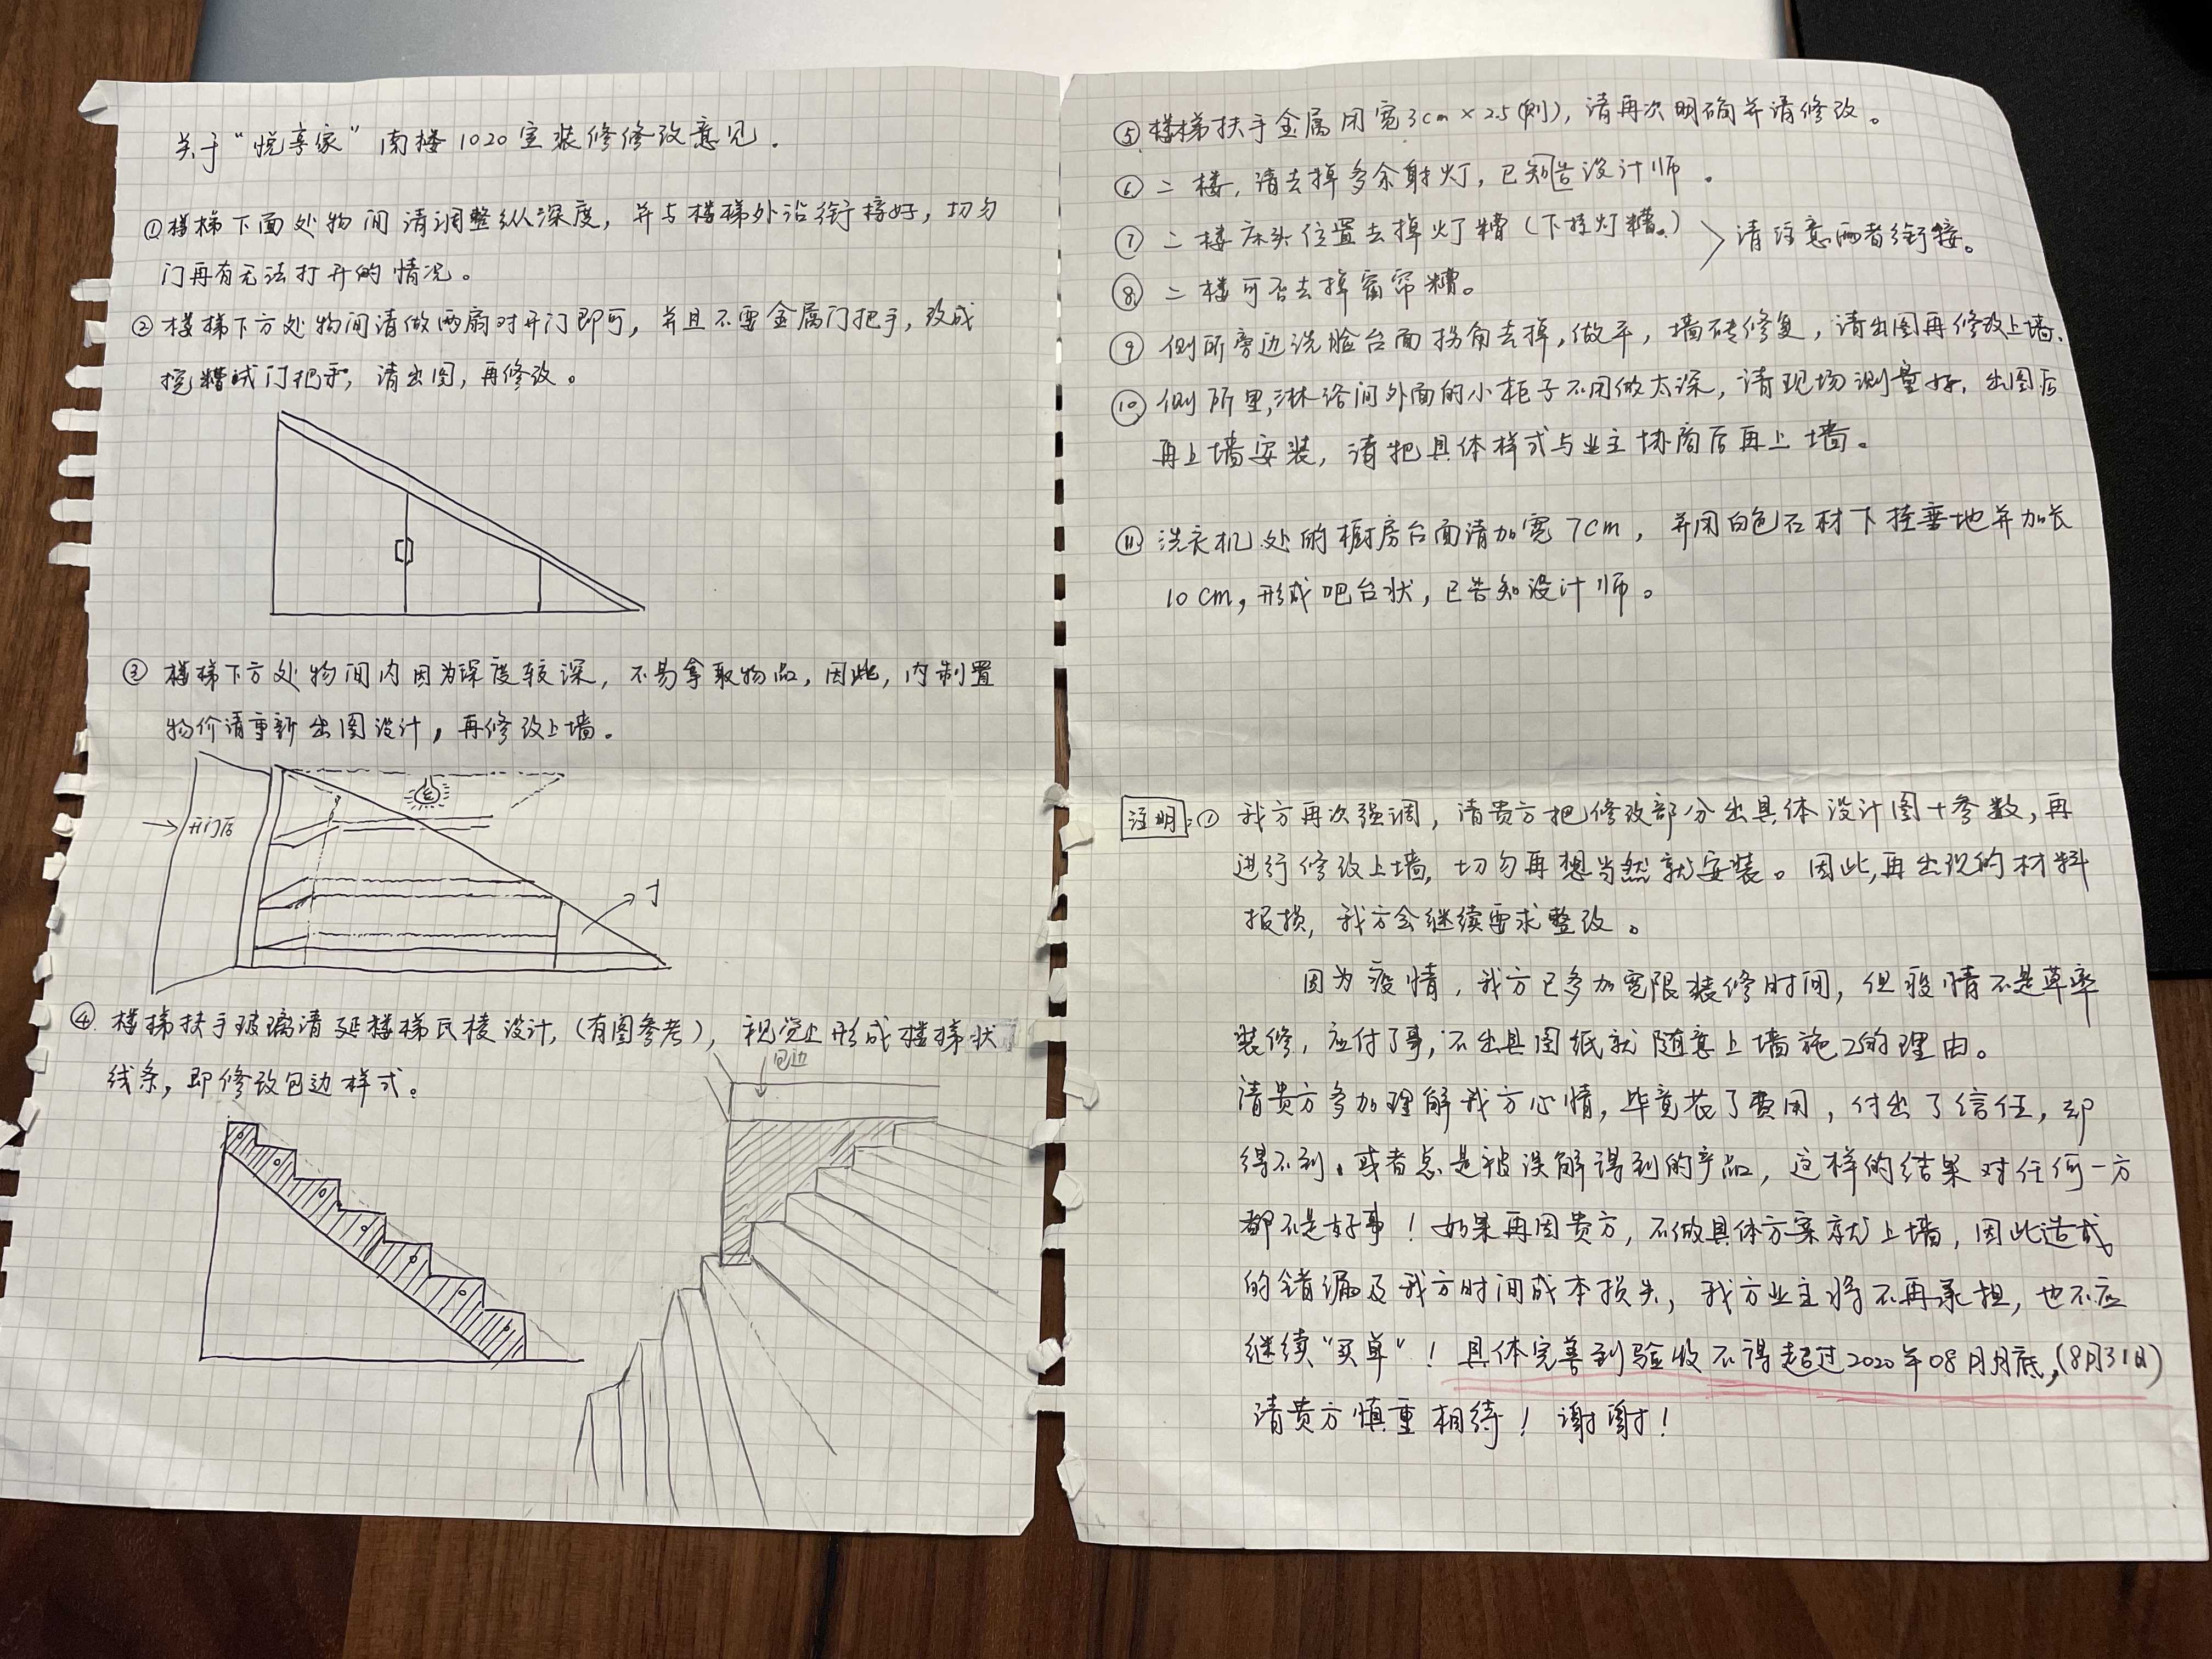 关于“悦享家”南楼1020室装修修改意见.
①楼梯下面处物间请调整纵深度，并与楼梯外沿衔接好，切勿
门再有无法打开的情况。
②楼梯下方处物间请做两扇对开门即可，并且不要金属门把手，改成
挖糟式门把手，请出图，再修改。
③楼梯下方处物间内因为深度较深，不易拿取物品，因此，内制置
物价请重新出图设计，再修改上墙。
→开门后
④楼梯扶手玻璃请延楼梯瓦棱设计，(有图参考)，视觉上形成楼梯状
线条，即修改包边样式。
包边
⑤楼梯扶手金属用宽3cm×2.5(侧)，请再次明确并请修改。
⑥二楼，请去掉多余射灯，已知告设计师。
⑦二楼床头位置去掉灯糟（下挂灯糟。）
⑧二楼可否去掉窗帘糟。
请注意两者衔接。
⑨侧所旁边洗脸台面拐角去掉，做平，墙砖修复，请出图再修改上墙.
⑩侧所里，淋浴间外面的小柜子不用做太深，请现场测量好，出图后
再上墙安装，请把具体样式与业主协商后再上墙。
⑪洗衣机处的橱房台面请加宽7cm，并用白色石材下挂垂地并加长
10cm，形成吧台状，已告知设计师。
注明：①我方再次强调，请贵方把修改部分出具体设计图+参数，再
进行修改上墙，切勿再想当然就安装。因此，再出现的材料
报损，我方会继续要求整改。
因为疫情，我方已多加宽限装修时间，但疫情不是草率
装修，应付了事，不出具图纸就随意上墙施工的理由。
请贵方多加理解我方心情，毕竟花了费用，付出了信任，却
得不到、或者总是被误解得到的产品，这样的结果对任何一方
都不是好事！如果再因贵方，不做具体方案就上墙，因此造成
的错漏及我方时间成本损失，我方业主将不再承担，也不应
继续“买单”！具体完善到验收不得超过2020年08月月底，(8月31日)
请贵方慎重相待！谢谢！